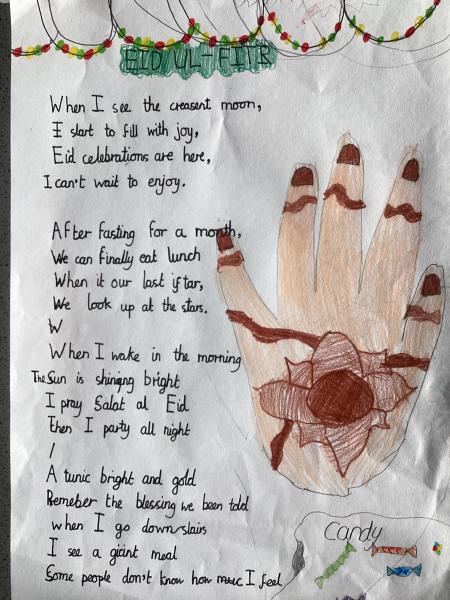 EID UL-FITR
When I see the creasent moon,
I start to fill with joy,
Eid celebrations are here,
I can't wait to enjoy.
After fasting for a month,
We can finally eat lunch
When it our last iftar,
We look up at the stars.
W
When I wake in the morning
The Sun is shinging bright
I pray Salat al Eid
Then I party all night
A tunic bright and gold
Remeber the blessing we been told
when I go downstairs
I see a giant meal
Some people don't know how I feel
Candy